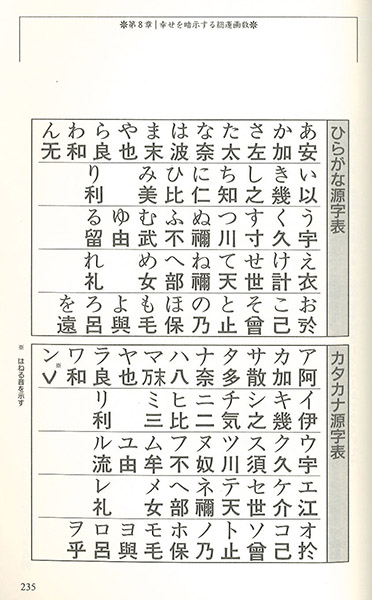 ※第8章│幸せを暗示する総運画数※
ひらがな源字表
あ安 い以 う宇 え衣 お於
か加 き幾 く久 け計 こ己
さ左 し之 す寸 せ世 そ曾
た太 ち知 つ川 て天 と止
な奈 に仁 ぬ奴 ね禰 の乃
は波 ひ比 ふ不 へ部 ほ保
ま末 み美 む武 め女 も毛
や也 ゆ由 よ與
ら良 り利 る留 れ礼 ろ呂
わ和 を遠
ん无
カタカナ源字表
ア阿 イ伊 ウ宇 エ江 オ於
カ加 キ幾 ク久 ケ介 コ己
サ散 シ之 ス須 セ世 ソ曾
タ多 チ千 ツ川 テ天 ト止
ナ奈 ニ二 ヌ奴 ネ禰 ノ乃
ハ八 ヒ比 フ不 ヘ部 ホ保
マ万末 ミ三 ム牟 メ女 モ毛
ヤ也 ユ由 ヨ與
ラ良 リ利 ル流 レ礼 ロ呂
ワ和 ヲ乎
ン※✓
※ はねる音を示す
235